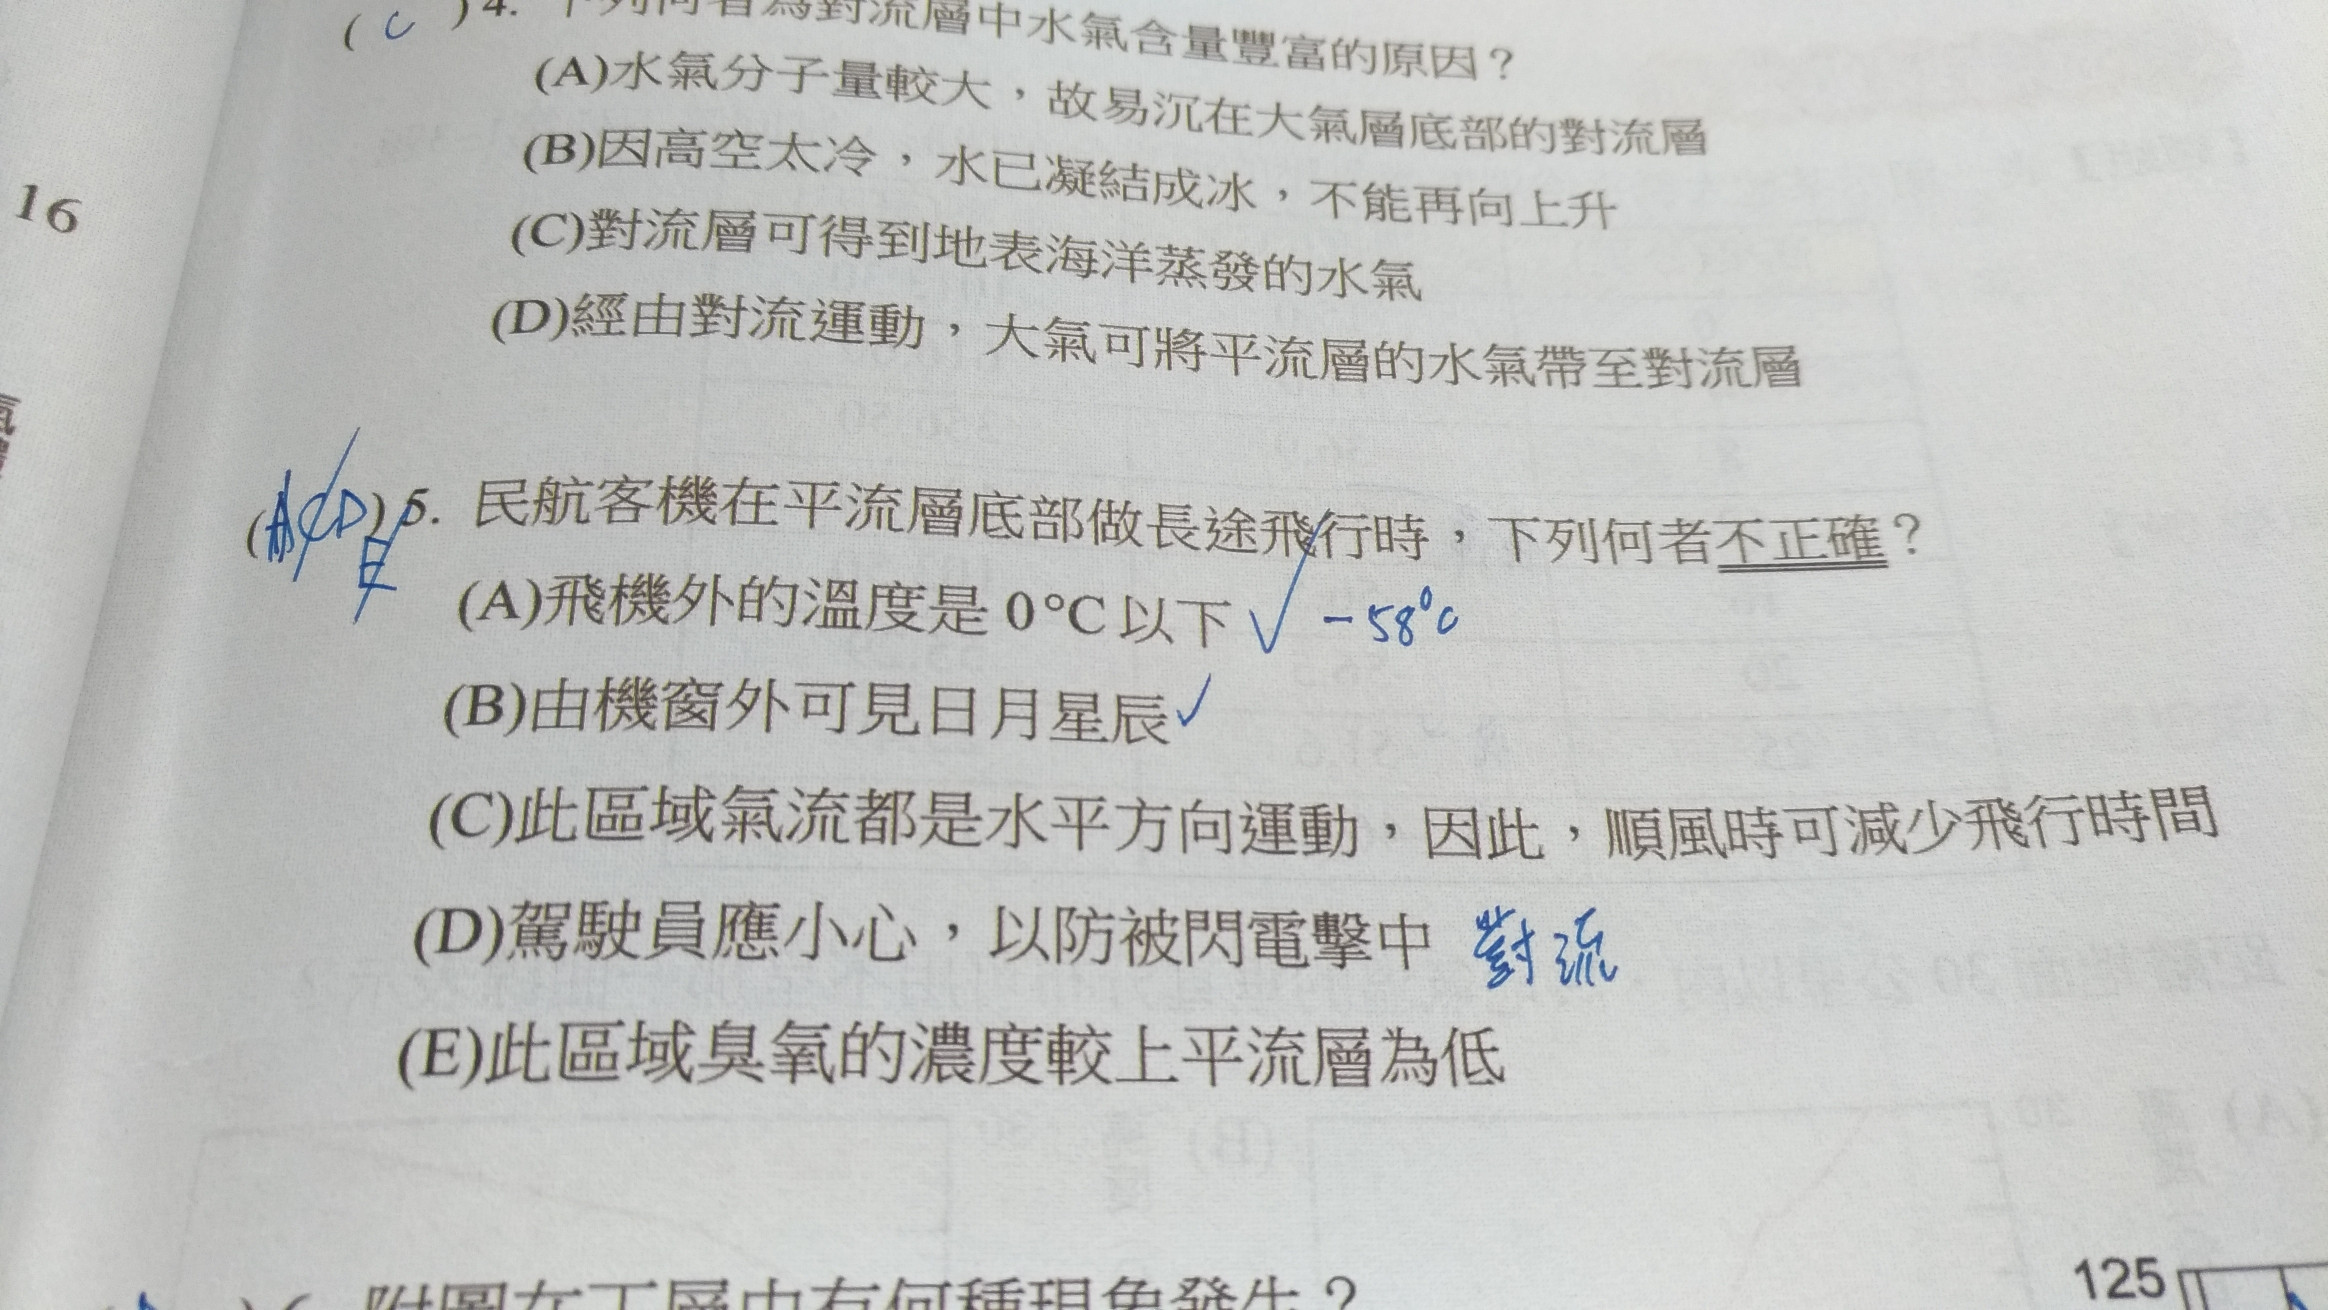 ( C ) 4. 下列何者為對流層中水氣含量豐富的原因？
(A)水氣分子量較大，故易沉在大氣層底部的對流層
(B)因高空太冷，水已凝結成冰，不能再向上升
(C)對流層可得到地表海洋蒸發的水氣
(D)經由對流運動，大氣可將平流層的水氣帶至對流層
16
(ACD) 5. 民航客機在平流層底部做長途飛行時，下列何者不正確？
E
(A)飛機外的溫度是 0°C 以下 ✓ -58°C
(B)由機窗外可見日月星辰 ✓
(C)此區域氣流都是水平方向運動，因此，順風時可減少飛行時間
(D)駕駛員應小心，以防被閃電擊中 對流
(E)此區域臭氧的濃度較上平流層為低
附圖在丁層中有何種現象發生？
125